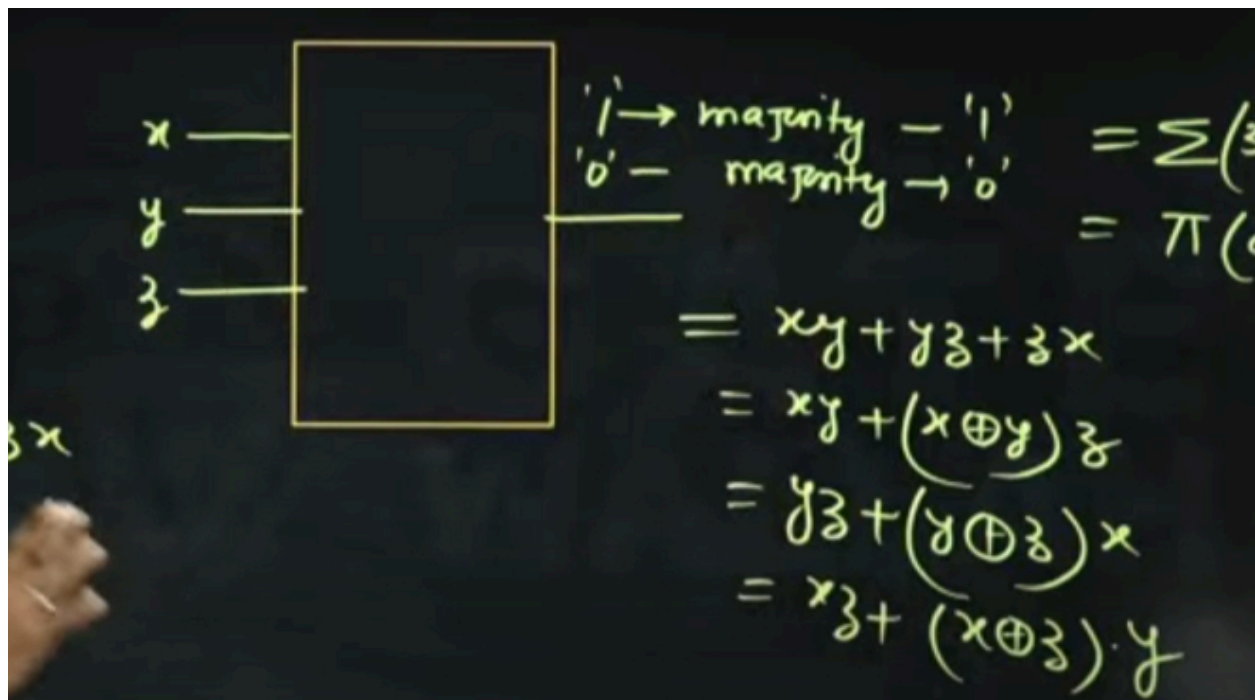 x
y
z
'1' → majority — '1'
'0' — majority → '0'
= Σ(
= π(
= xy + yz + zx
= xy + (x⊕y) z
= yz + (y⊕z) x
= xz + (x⊕z) · y
zx